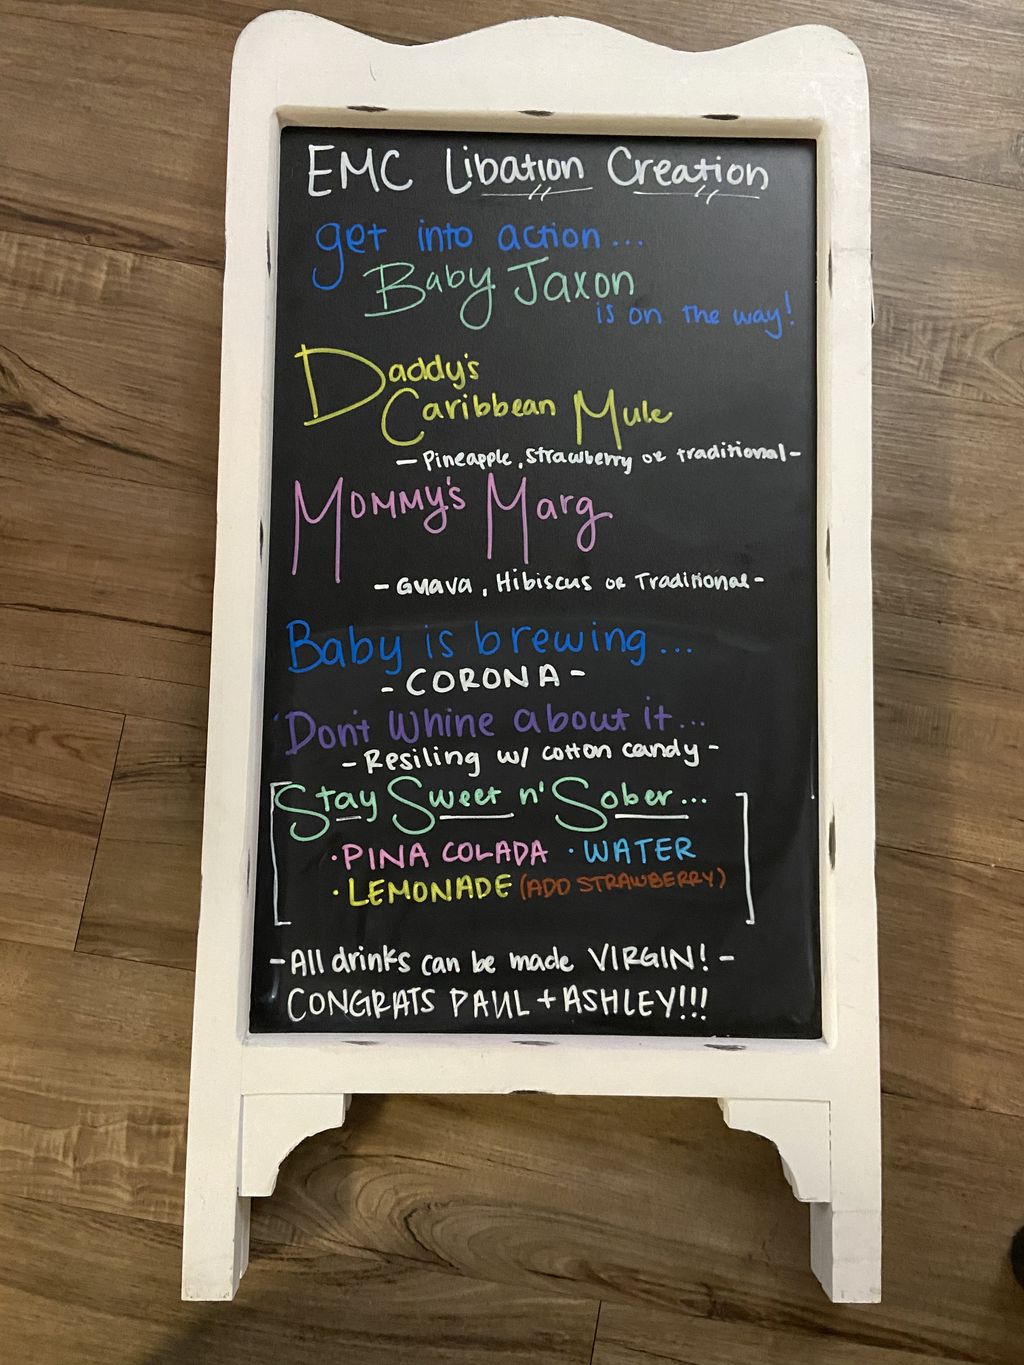 EMC Libation Creation
get into action...
Baby Jaxon
is on the way!
Daddy's
Caribbean Mule
- Pineapple, Strawberry or traditional -
Mommy's Marg
- Guava, Hibiscus or Traditional -
Baby is brewing...
- CORONA -
Don't Whine about it...
- Resiling w/ cotton candy -
Stay Sweet n' Sober...
• PINA COLADA • WATER
• LEMONADE (ADD STRAWBERRY)
- All drinks can be made VIRGIN! -
CONGRATS PAUL + ASHLEY!!!